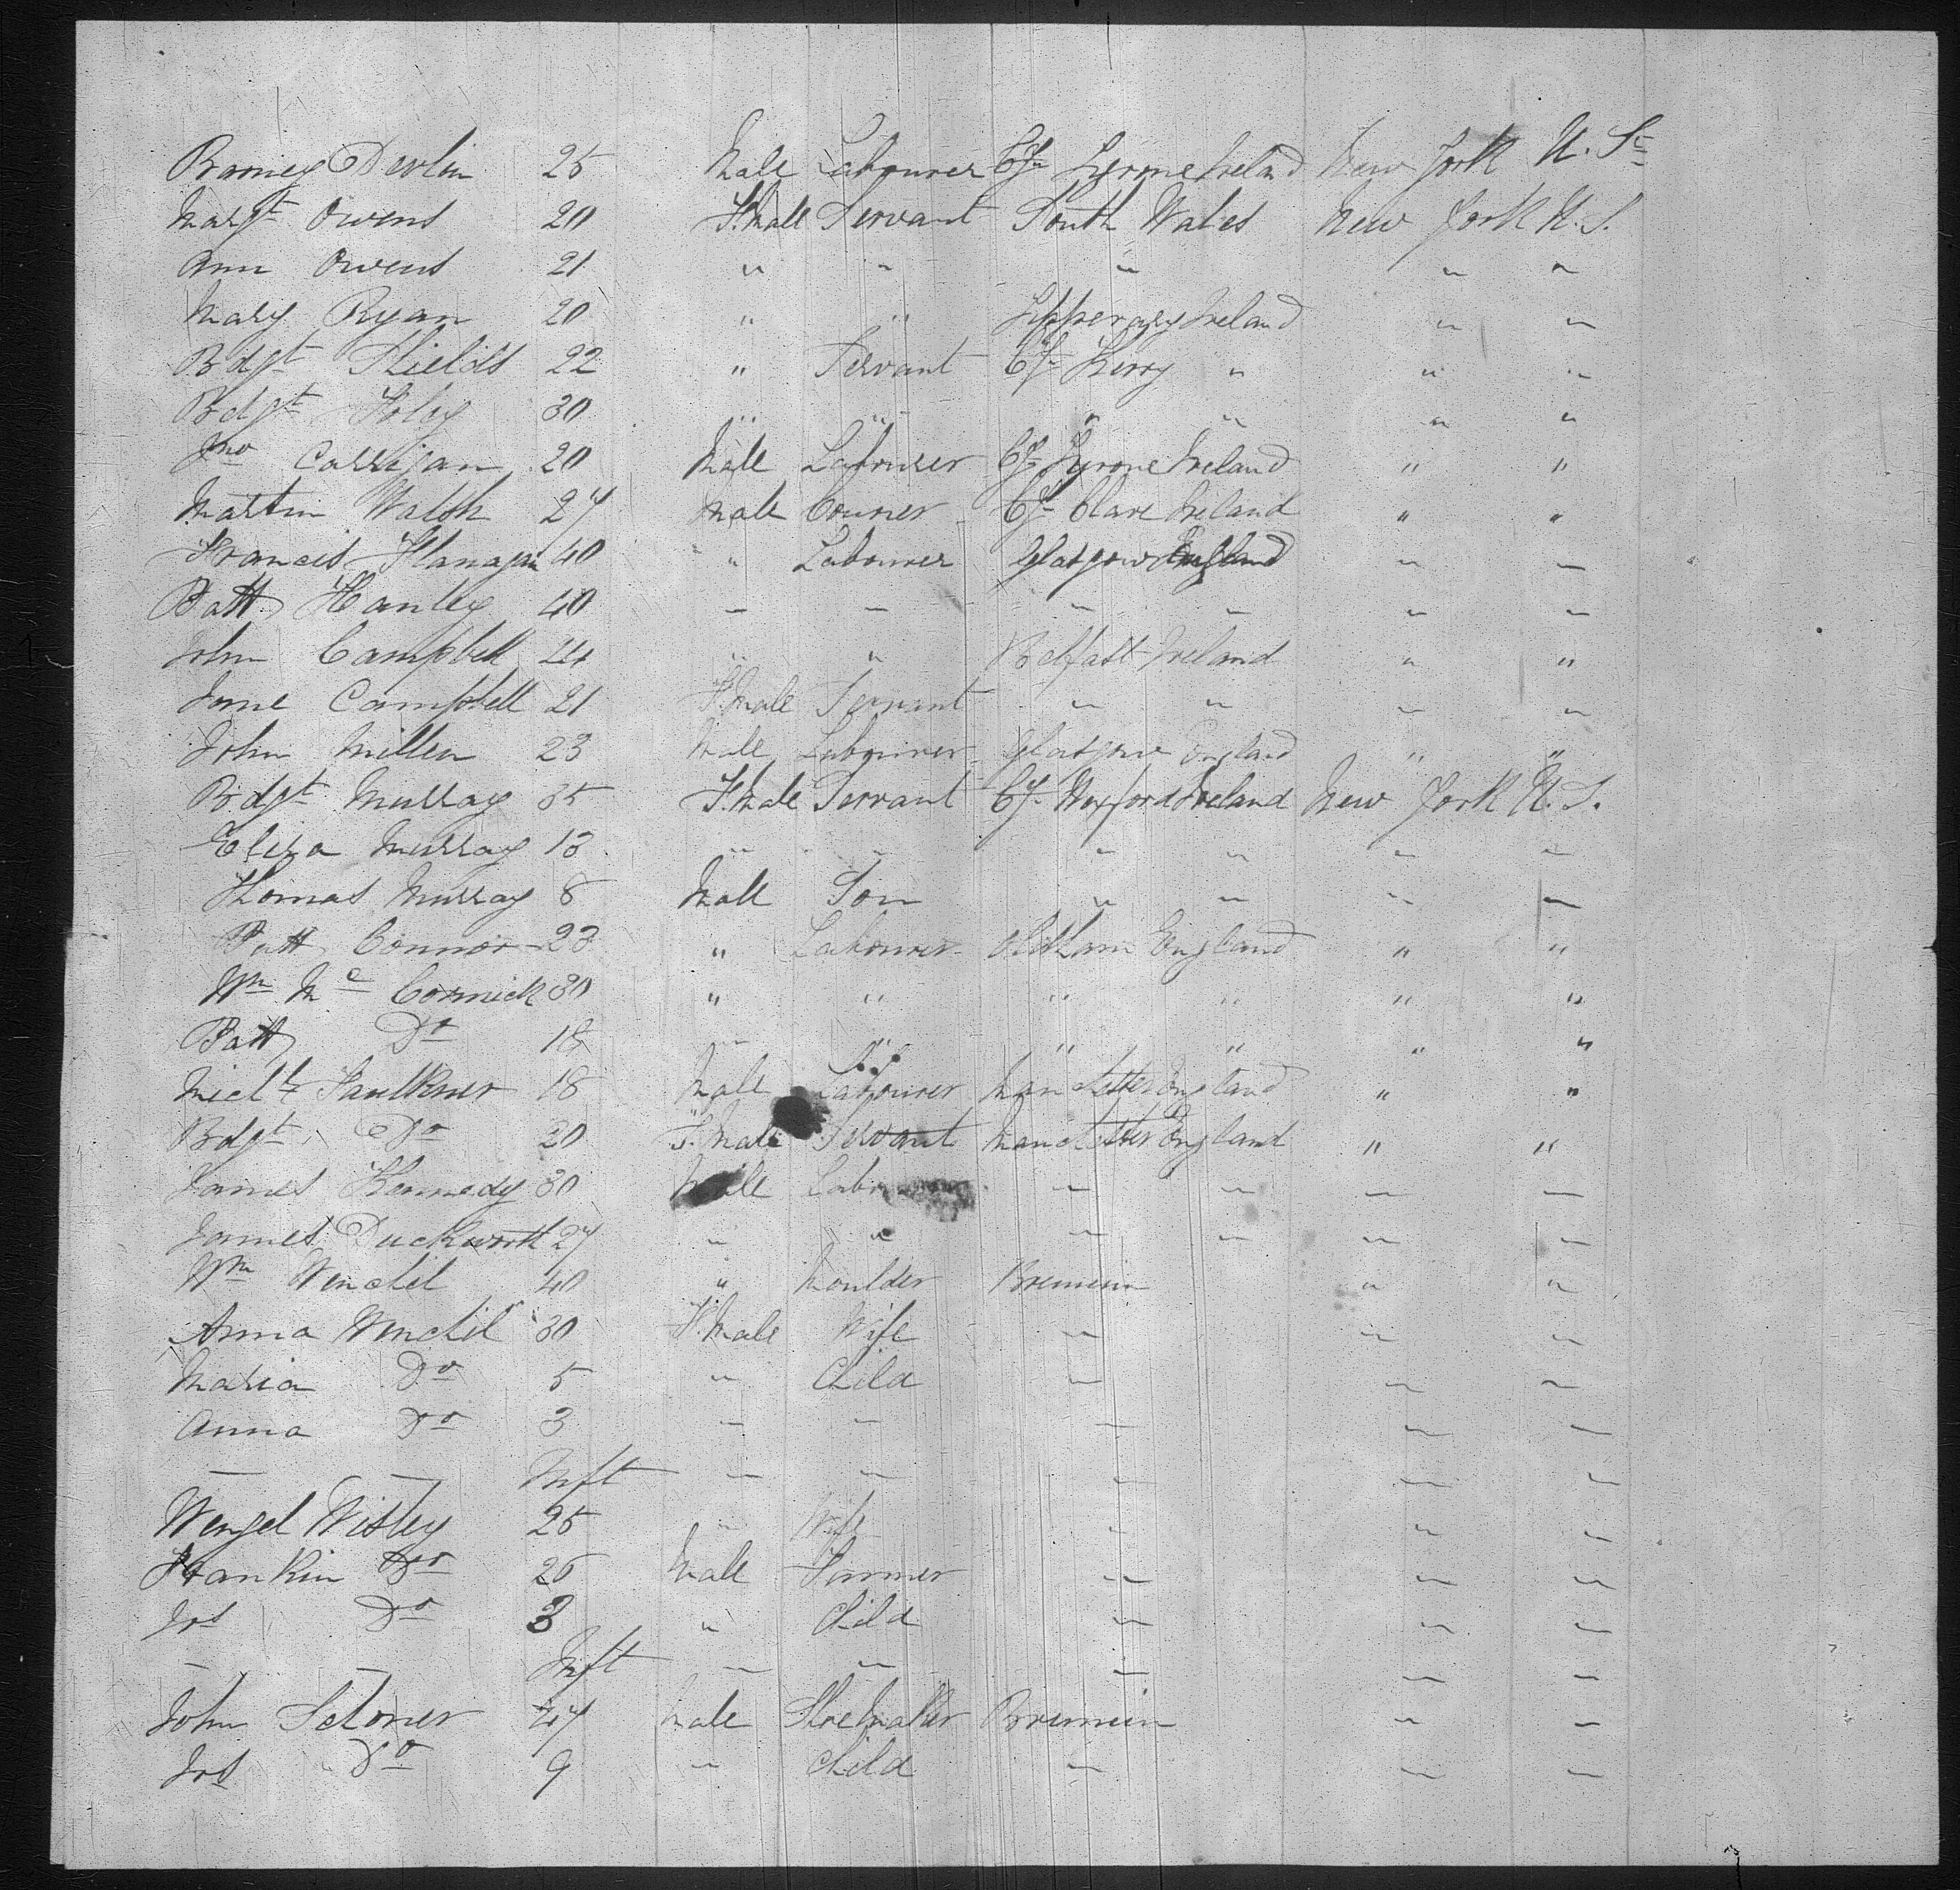 Barney Devlin 25 Male Labourer Cy Tyrone Ireland New York U. S.
Margt Owens 20 F.Male Servant South Wales New York U. S.
Ann Owens 21 " " " " "
Mary Ryan 20 " " Tipperary Ireland " "
Bdgt Shields 22 " Servant Cy Kerry " " "
Bdgt Foley 30 " " " " " "
Jno Carrigan 20 Male Labourer Cy Tyrone Ireland " "
Martin Walsh 27 Male Cy Clare Ireland " "
Francis Flanagan 40 " Labourer Glasgow England " "
Patt Hanley 40 " " " " " "
John Campbell 24 " " Belfast Ireland " "
Jane Campbell 21 F.Male Servant " " " "
John Millen 23 Male Labourer Glasgow England " "
Bdgt Murray 35 F.Male Servant Cy Wexford Ireland New York U. S.
Eliza Murray 13 " " " " " "
Thomas Murray 8 Male Son " " " "
Patt Connor 23 " Labourer Oldham England " "
Wm Mc Cormick 30 " " " " " "
Patt Do 18 " " " " " "
Michl Faulkner 18 Male Labourer Manchester England " "
Bdgt Do 20 F.Male Servant Manchester England " "
James Kennedy 30 Male " " " "
James Duckworth 27 " " " " " "
Wm Wenchel 40 " Moulder Bremein " "
Anna Wenchel 30 F.Male Wife " " "
Maria Do 5 " Child " " "
Anna Do 3 " " " " "
— — Inft " " " " "
Wenzel Wisley 25 " Wife " " "
Frankin Do 26 Male Farmer " " "
Jos Do 3 " Child " " "
— — Inft " " " " "
John Schoner 47 Male Shoemaker Bremein " "
Jos Do 9 " Child " " "